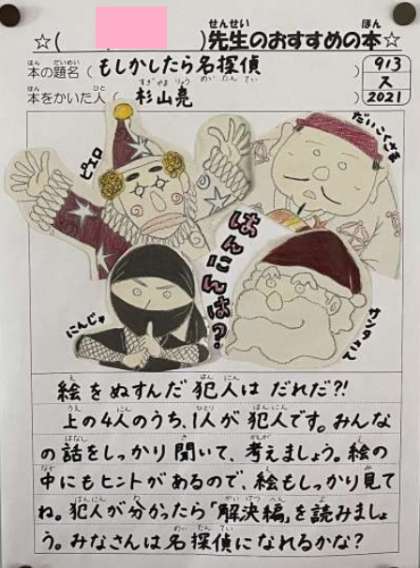 ☆( )先生のおすすめの本☆
本の題名(もしかしたら名探偵)
913
本をかいた人(杉山亮)
ス
2021
ピエロ
だいこくさま
はんにんは?
にんじゃ
サンタクロス
絵をぬすんだ犯人はだれだ?!
上の4人のうち、1人が犯人です。みんな
の話をしっかり聞いて、考えましょう。絵の
中にもヒントがあるので、絵もしっかり見て
ね。犯人が分かったら「解決編」を読みましょ
う。みなさんは名探偵になれるかな?